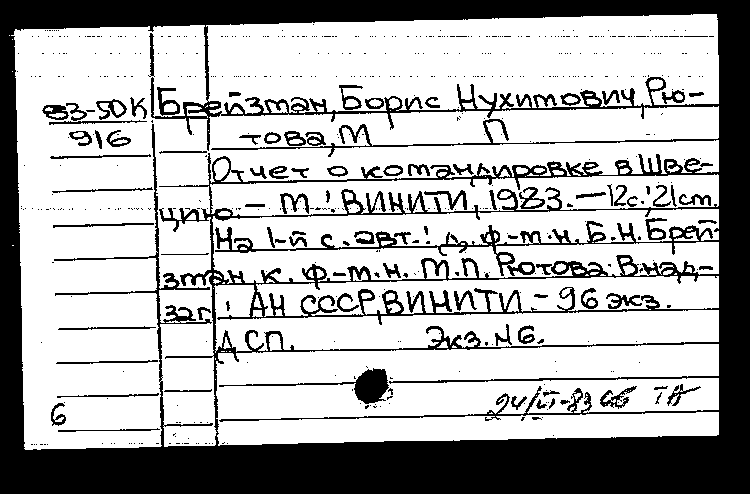 83-50К Брейзман, Борис Нухимович, Рю-
916 това, М П
Отчет о командировке в Шве-
цию. – М.: ВИНИТИ, 1983. – 12с.; 21см.
На 1-й с. авт.: д. ф.-м.н. Б.Н. Брей-
зман, к. ф.-м.н. М.П. Рютова. В над-
заг.: АН СССР, ВИНИТИ. – 96 экз.
ДСП. Экз. № 6.
6